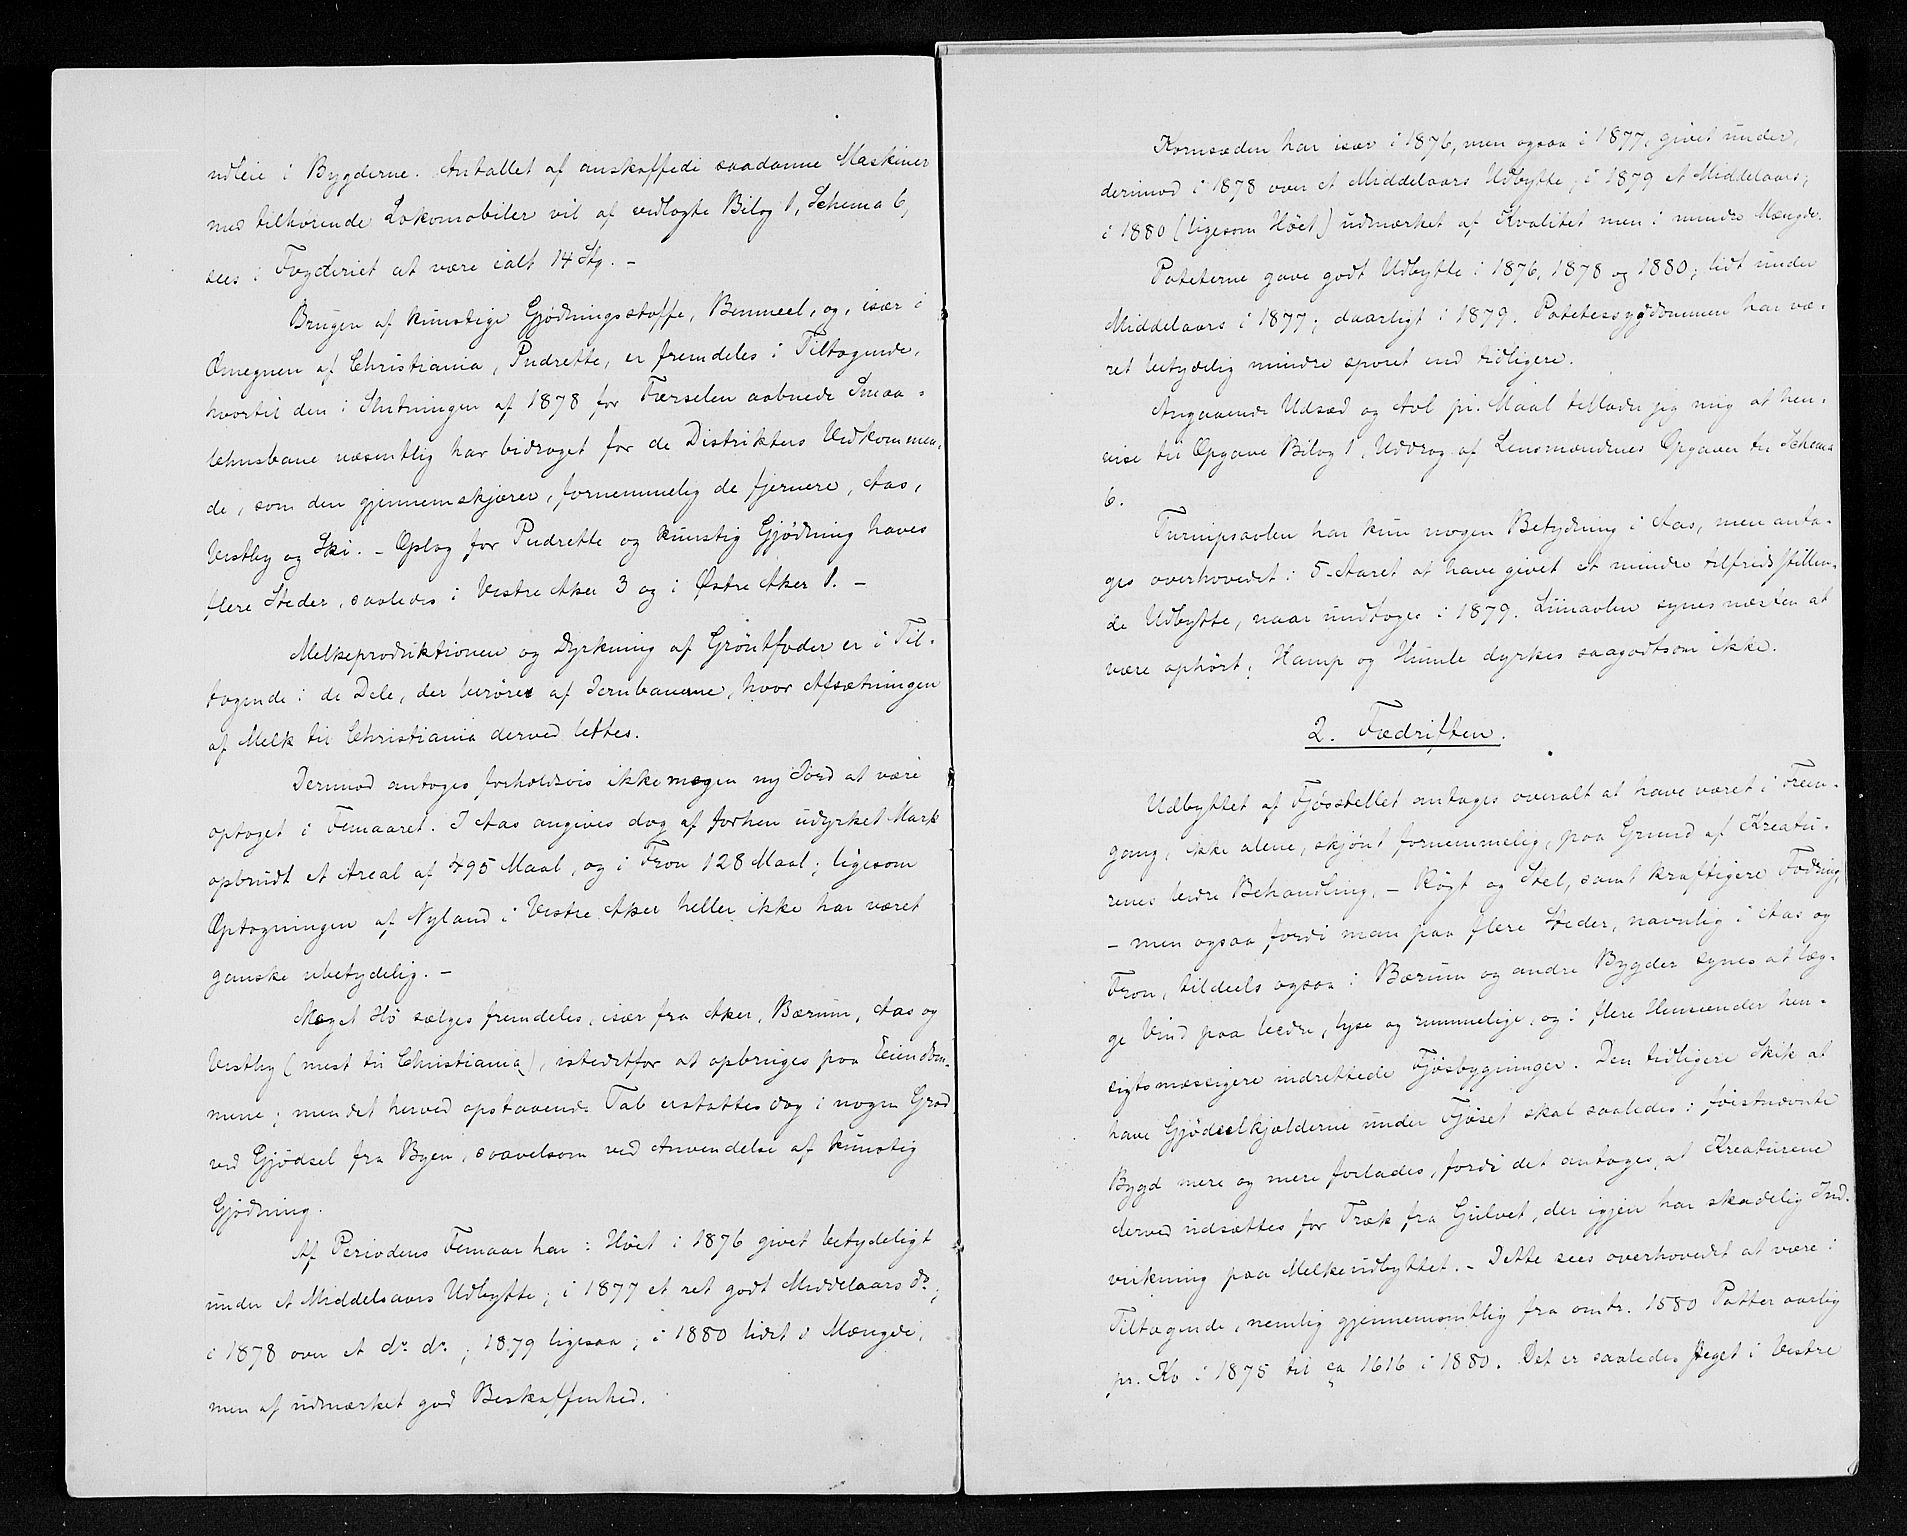 udleie i Bygderne. Antallet af anskaffede saadanne Maskiner
med tilhørende Lokomobiler vil af vedlagte Bilag 1, Schema 6,
sees i Fogderiet at være ialt 14 Stq. -
Brugen af kunstige Gjødningsstoffe, Benmeel, og, især i
Omegnen af Christiania, Pudrette, er fremdeles i Tiltagende,
hvortil den i Slutningen af 1878 for Færselen aabnede Smaa-
lehnsbane væsentlig har bidraget for de Distrikters Vedkommen-
de, som den gjennemskjærer, fornemmelig de fjernere, Aas,
Vestby og Ski. - Oplag for Pudrette og kunstig Gjødning haves
flere Steder, saaledes i Vestre Aker 3 og i Østre Aker 1. -
Melkeproduktionen og Dyrkning af Grøntfoder er i Til-
tagende i de Dele, der berøres af Jernbanerne, hvor Afsætningen
af Melk til Christiania derved lettes.
Derimod antages forholdsvis ikke megen ny Jord at være
optaget i Femaaret. I Aas angives dog af forhen udyrket Mark
opbrudt et Areal af 495 Maal, og i Fron 128 Maal; ligesom
Optagningen af Nyland i Vestre Aker heller ikke har været
ganske ubetydelig. -
Meget Hø sælges fremdeles, især fra Aker, Bærum, Aas og
Vestby (mest til Christiania), istedetfor at opbruges paa Eiendom-
mene; men det herved opstaaende Tab erstattes dog i nogen Grad
ved Gjødsel fra Byen, saavelsom ved Anvendelse af kunstig
Gjødning.
Af Periodens Femaar har: Høet i 1876 givet betydeligt
under et Middelsaars Udbytte; i 1877 et ret godt Middelaars do;
i 1878 over et do do; 1879 ligesaa; i 1880 lidet i Mængde,
men af udmærket god Beskaffenhed.
Kornsæden har især i 1876, men ogsaa i 1877, givet under,
derimod i 1878 over et Middelaars Udbytte; i 1879 et Middelaars;
i 1880 (ligesom Høet) udmærket af Kvalitet men i mindre Mængde.
Poteterne gave godt Udbytte i 1876, 1878 og 1880; lidt under
Middelaars i 1877; daarligt i 1879. Potetessygdommen har væ-
ret betydelig mindre sporet end tidligere.
Angaaende Udsæd og Avl pr. Maal tillader jeg mig at hen-
vise til Opgave Bilag 1, Uddrag af Lensmændenes Opgaver til Schema
6.
Turnipsavlen har kun nogen Betydning i Aas, men anta-
ges overhovedet i 5-Aaret at have givet et mindre tilfredsstillen-
de Udbytte, naar undtages i 1879. Linavlen synes næsten at
være ophørt; Hamp og Humle dyrkes saagodtsom ikke.
2. Fædriften.
Udbyttet af Fjøsstellet antages overalt at have været i Frem-
gang, ikke alene, skjønt fornemmelig, paa Grund af Kreatu-
renes bedre Behandling, - Røgt og Stel, samt kraftigere Fodring,
- men ogsaa fordi man paa flere Steder, navnlig i Aas og
Fron, tildeels ogsaa i Bærum og andre Bygder synes at læg-
ge Vind paa bedre, lyse og rummelige, og i flere Henseender hen-
sigtsmæssigere indrettede Fjøsbygninger. Den tidligere Skik at
have Gjødselkjælderne under Fjøset skal saaledes i førstnævnte
Bygd mere og mere forlades, fordi det antages, at Kreaturene
derved udsættes for Træk fra Gulvet, der igjen har skadelig Ind-
virkning paa Melkeudbyttet. - Dette sees overhovedet at være i
Tiltagende, nemlig gjennemsnitlig fra omtr. 1580 Potter aarlig
pr. Ko i 1875 til ca 1616 i 1880. Det er saaledes steget i Vestre